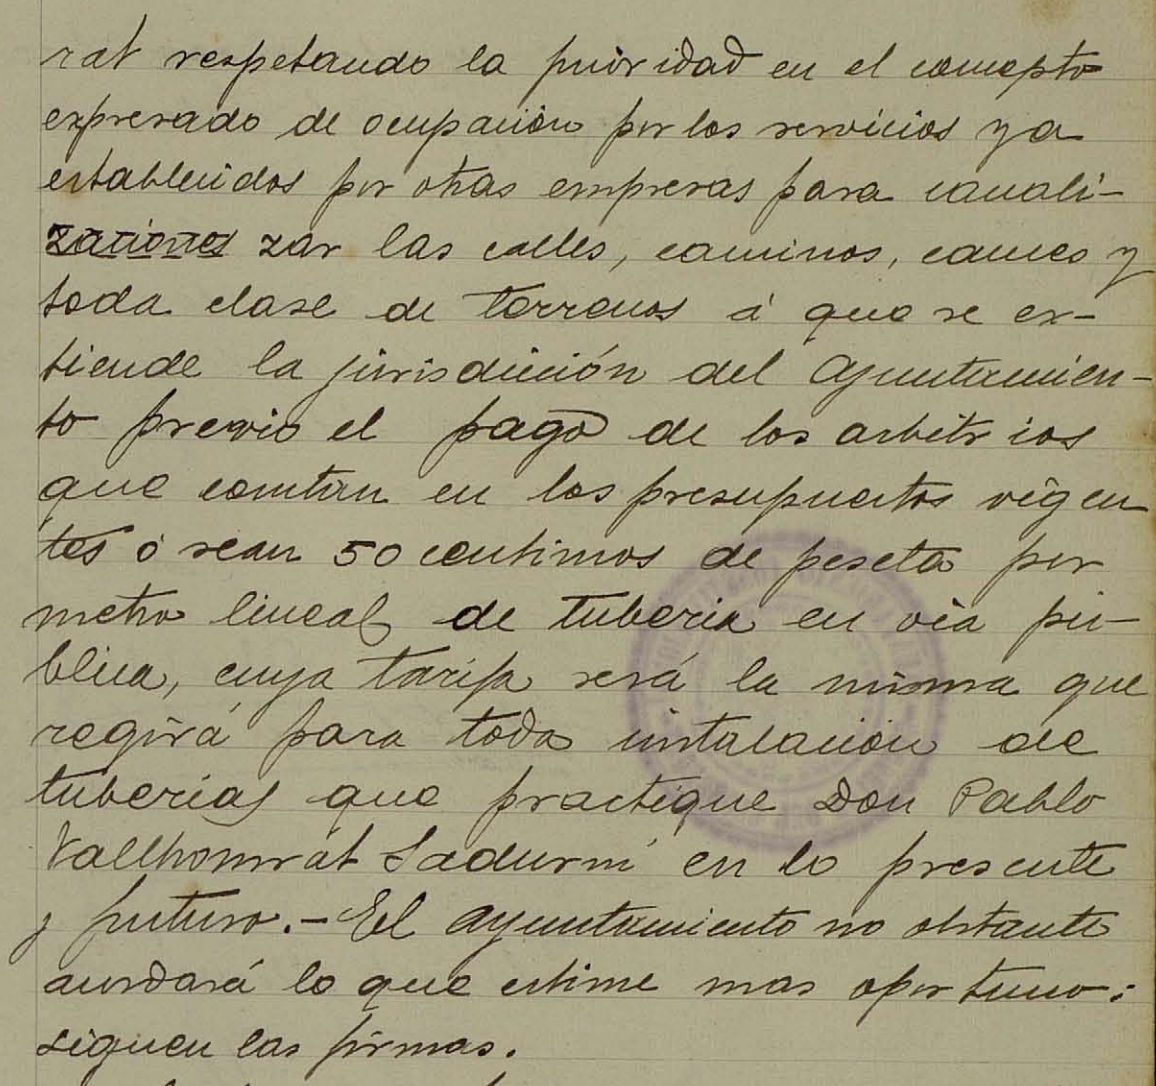 rat respetando la prioridad en el concepto
expresado de ocupación por los servicios ya
establecidos por otras empresas para canali-
zaciones zar las calles, caminos, cauces y
toda clase de terrenos á que se ex-
tiende la jurisdicción del Ayuntamien-
to previo el pago de los arbitrios
que constan en los presupuestos vigen
tes ó sean 50 centimos de peseta por
metro lineal de tuberia en via pú-
blica, cuya tarifa será la misma que
regirá para toda instalación de
tuberias que practique Don Pablo
Vallhonrat Sadurní en lo presente
y futuro.- El Ayuntamiento no obstante
acordará lo que estime mas oportuno:
siguen las firmas.